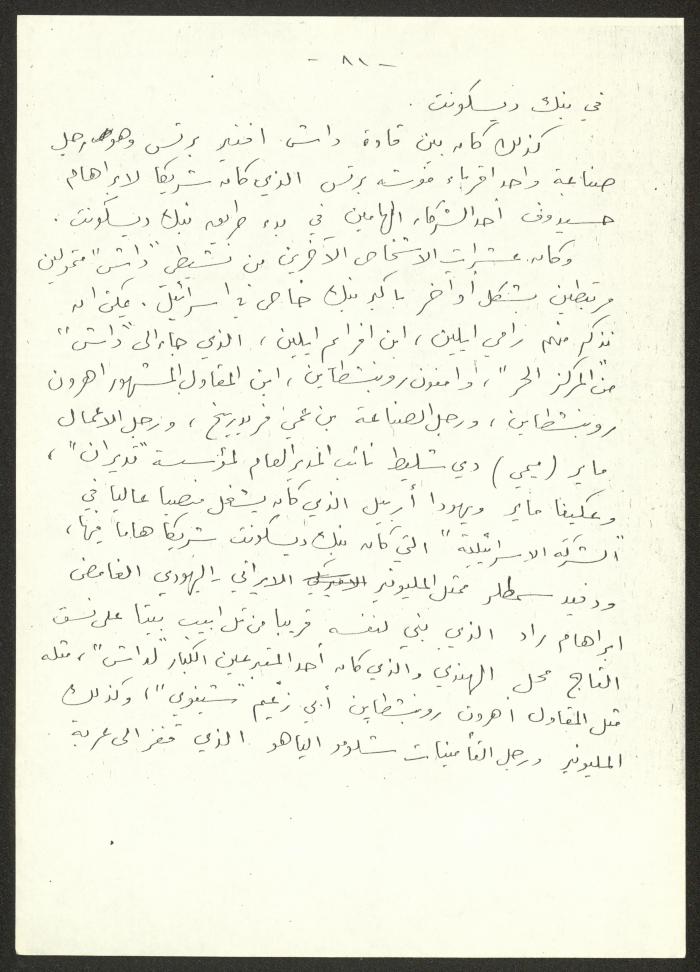 - ٨١ -
في بنك ديسكونت .
كذلك كان بين قادة داش افنير برتس وهو رجل
صناعة واحد اقرباء موشه برتس الذي كان شريكا لابراهام
حسيدوف أحد الشركاء الهامين في بدء طريق بنك ديسكونت .
وكان عشرات الاشخاص الآخرين من نشيطي "داش" متمولين
مرتبطين بشكل أو آخر باكبر بنك خاص في اسرائيل . يمكن ان
نذكر منهم رامي ايلين ، ابن افرايم ايلين ، الذي جاء الى "داش"
من "المركز الحر" ، وامنون روبنشطاين ، ابن المقاول المشهور اهرون
روبنشطاين ، ورجل الصناعة بن عمي فريدريخ ، ورجل الاعمال
ماير (ميمي) دي شليط نائب المدير العام لمؤسسة "تديران" ،
وعكيفا ماير ويهودا أربيل الذي كان يشغل منصبا عاليا في
"الشركة الاسرائيلية" التي كان بنك ديسكونت شريكا هاما فيها ،
ودفيد ممثل المليونير الايراني - اليهودي الغامض
ابراهام راد الذي بني لنفسه قريبا من تل ابيب بيتا على نسق
التاج محل الهندي والذي كان أحد المتبرعين الكبار "لداش" ، مثله
مثل المقاول اهرون روبنشطاين أبي زعيم "شينوي" ، وكذلك
المليونير ورجل التأمينات شلومو الياهو الذي قفز الى عربة